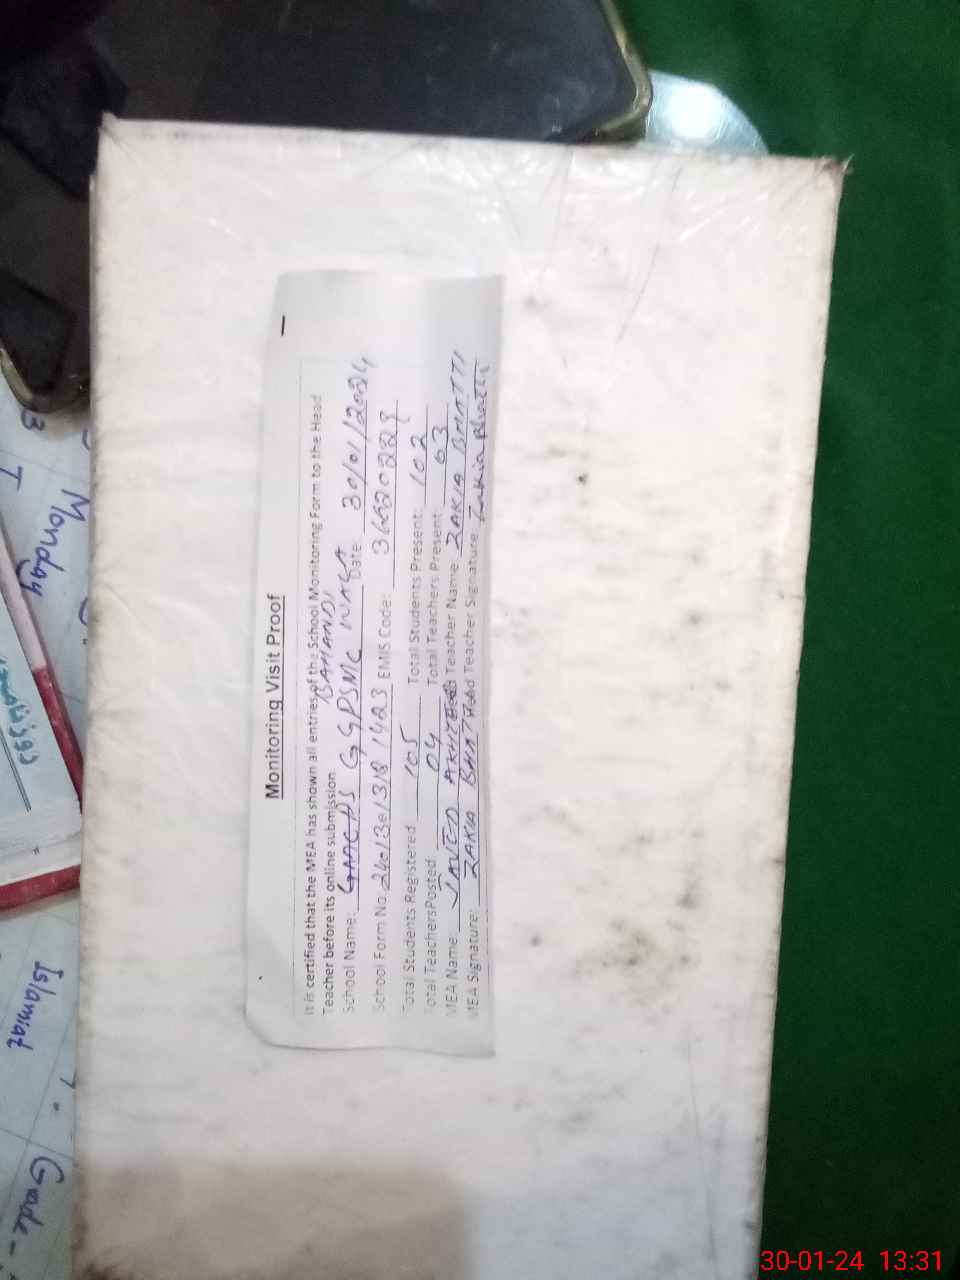 Monitoring Visit Proof
It is certified that the MEA has shown all entries of the School Monitoring Form to the Head
Teacher before its online submission.
School Name: GGPSMC Date 30/01/2024
School Form No. EMIS Code:
Total Students Registered 105 Total Students Present: 102
Total Teachers Posted: 04 Total Teachers Present: 03
MEA Name: JAVED AKHTER Head Teacher Name: ZAKIA BHATTI
MEA Signature: ZAKIA BHATTI Head Teacher Signature: Zakia Bhatti
Monday
Islamiat
Grade -
30-01-24 13:31